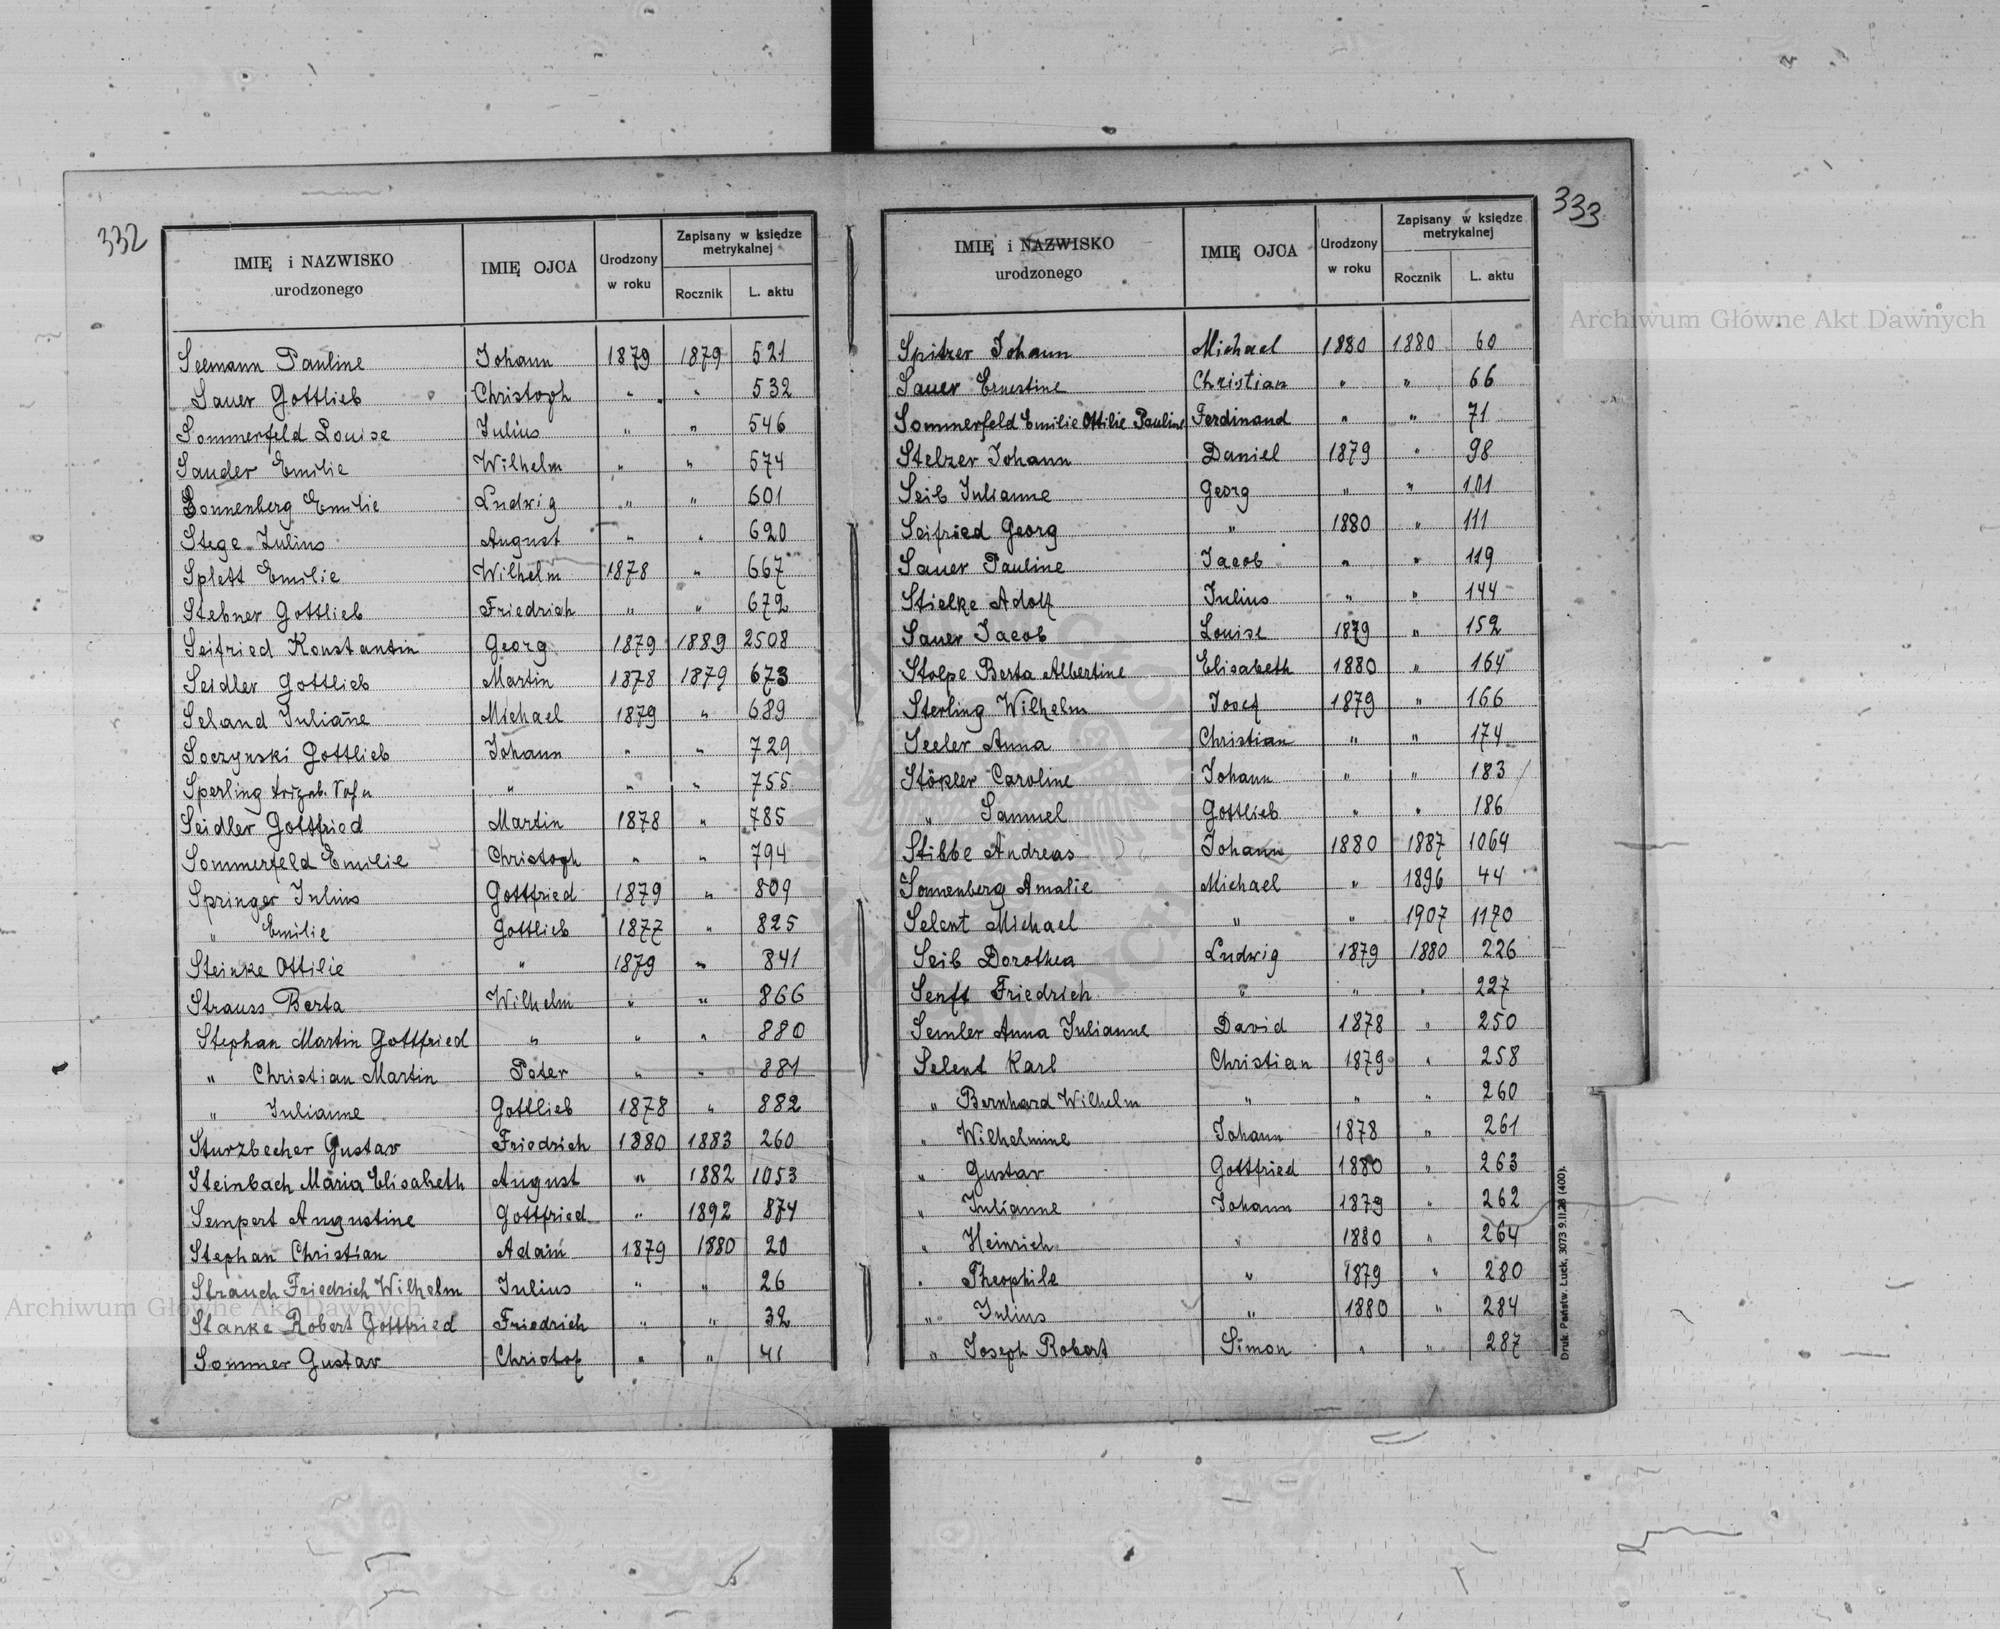 332
IMIĘ i NAZWISKO urodzonego | IMIĘ OJCA | Urodzony w roku | Zapisany w księdze metrykalnej
Rocznik | L. aktu
Seemann Pauline | Johann | 1879 | 1879 | 521
Sauer Gottlieb | Christoph | " | " | 532
Sommerfeld Louise | Julius | " | " | 546
Sauder Emilie | Wilhelm | " | " | 574
Sonnenberg Emilie | Ludwig | " | " | 601
Stege Julius | August | " | " | 620
Splett Emilie | Wilhelm | 1878 | " | 667
Stebner Gottlieb | Friedrich | " | " | 672
Seifried Konstantin | Georg | 1879 | 1889 | 2508
Seidler Gottlieb | Martin | 1878 | 1879 | 673
Seland Juliane | Michael | 1879 | " | 689
Soczynski Gottlieb | Johann | " | " | 729
Sperling | " | " | " | 755
Seidler Gottfried | Martin | 1878 | " | 785
Sommerfeld Emilie | Christoph | " | " | 794
Springer Julius | Gottfried | 1879 | " | 809
" Emilie | Gottlieb | 1877 | " | 825
Steinke Ottilie | " | 1879 | " | 841
Strauss Berta | Wilhelm | " | " | 866
Stephan Martin Gottfried | " | " | " | 880
" Christian Martin | Peter | " | " | 881
" Julianne | Gottlieb | 1878 | " | 882
Sturzbecher Gustav | Friedrich | 1880 | 1883 | 260
Steinbach Maria Elisabeth | August | " | 1882 | 1053
Sempert Augustine | Gottfried | " | 1892 | 874
Stephan Christian | Adam | 1879 | 1880 | 20
Strauch Friedrich Wilhelm | Julius | " | " | 26
Stanke Robert Gottfried | Friedrich | " | " | 32
Sommer Gustav | Christof | " | " | 41
333
IMIĘ i NAZWISKO urodzonego | IMIĘ OJCA | Urodzony w roku | Zapisany w księdze metrykalnej
Rocznik | L. aktu
Spitzer Johann | Michael | 1880 | 1880 | 60
Sauer Ernestine | Christian | " | " | 66
Sommerfeld Emilie Ottilie Pauline | Ferdinand | " | " | 71
Stelzer Johann | Daniel | 1879 | " | 98
Seib Julianne | Georg | " | " | 101
Seifried Georg | " | 1880 | " | 111
Sauer Pauline | Jacob | " | " | 119
Stielke Adolf | Julius | " | " | 144
Sauer Jacob | Louise | 1879 | " | 152
Stolpe Berta Albertine | Elisabeth | 1880 | " | 164
Sterling Wilhelm | Josef | 1879 | " | 166
Seeler Anna | Christian | " | " | 174
Stökler Caroline | Johann | " | " | 183
" Samuel | Gottlieb | " | " | 186
Stibbe Andreas | Johann | 1880 | 1887 | 1064
Sonnenberg Amalie | Michael | " | 1896 | 44
Selent Michael | " | " | 1907 | 1170
Seib Dorothea | Ludwig | 1879 | 1880 | 226
Senft Friedrich | " | " | " | 227
Semler Anna Julianne | David | 1878 | " | 250
Selent Karl | Christian | 1879 | " | 258
" Bernhard Wilhelm | " | " | " | 260
" Wilhelmine | Johann | 1878 | " | 261
" Gustav | Gottfried | 1880 | " | 263
" Julianne | Johann | 1879 | " | 262
" Heinrich | " | 1880 | " | 264
" Theophile | " | 1879 | " | 280
" Julius | " | 1880 | " | 284
" Joseph Robert | Simon | " | " | 287
Druk. Państw. Łuck, 3073 9.II.28 (400).
Archiwum Główne Akt Dawnych
Archiwum Główne Akt Dawnych